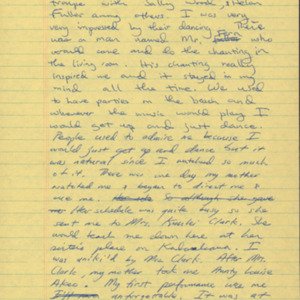 troupe with Sally Wood, Helen
among others. I was very
very impressed by their dancing. There
was a man named Mr. who
would come and do the chanting in
the living room. His chanting really
inspired me and it stayed in my
mind all the time. We used
to have parties on the beach and
whenever the music would play I
would get up and just dance.
People used to admire me because I
would just get up and dance but it
was natural since I watched so much
of it. There was one day my mother
watched me & began to direct me &
use me.
Her schedule was quite busy so she
sent me to Mrs. Clark. She
would teach me down here at her
place on Kalakaua. I
was by Ma Clark. After Mrs.
Clark, my mother took me Aunty Louise
Akeo. My first performance was
unforgettable. It was at